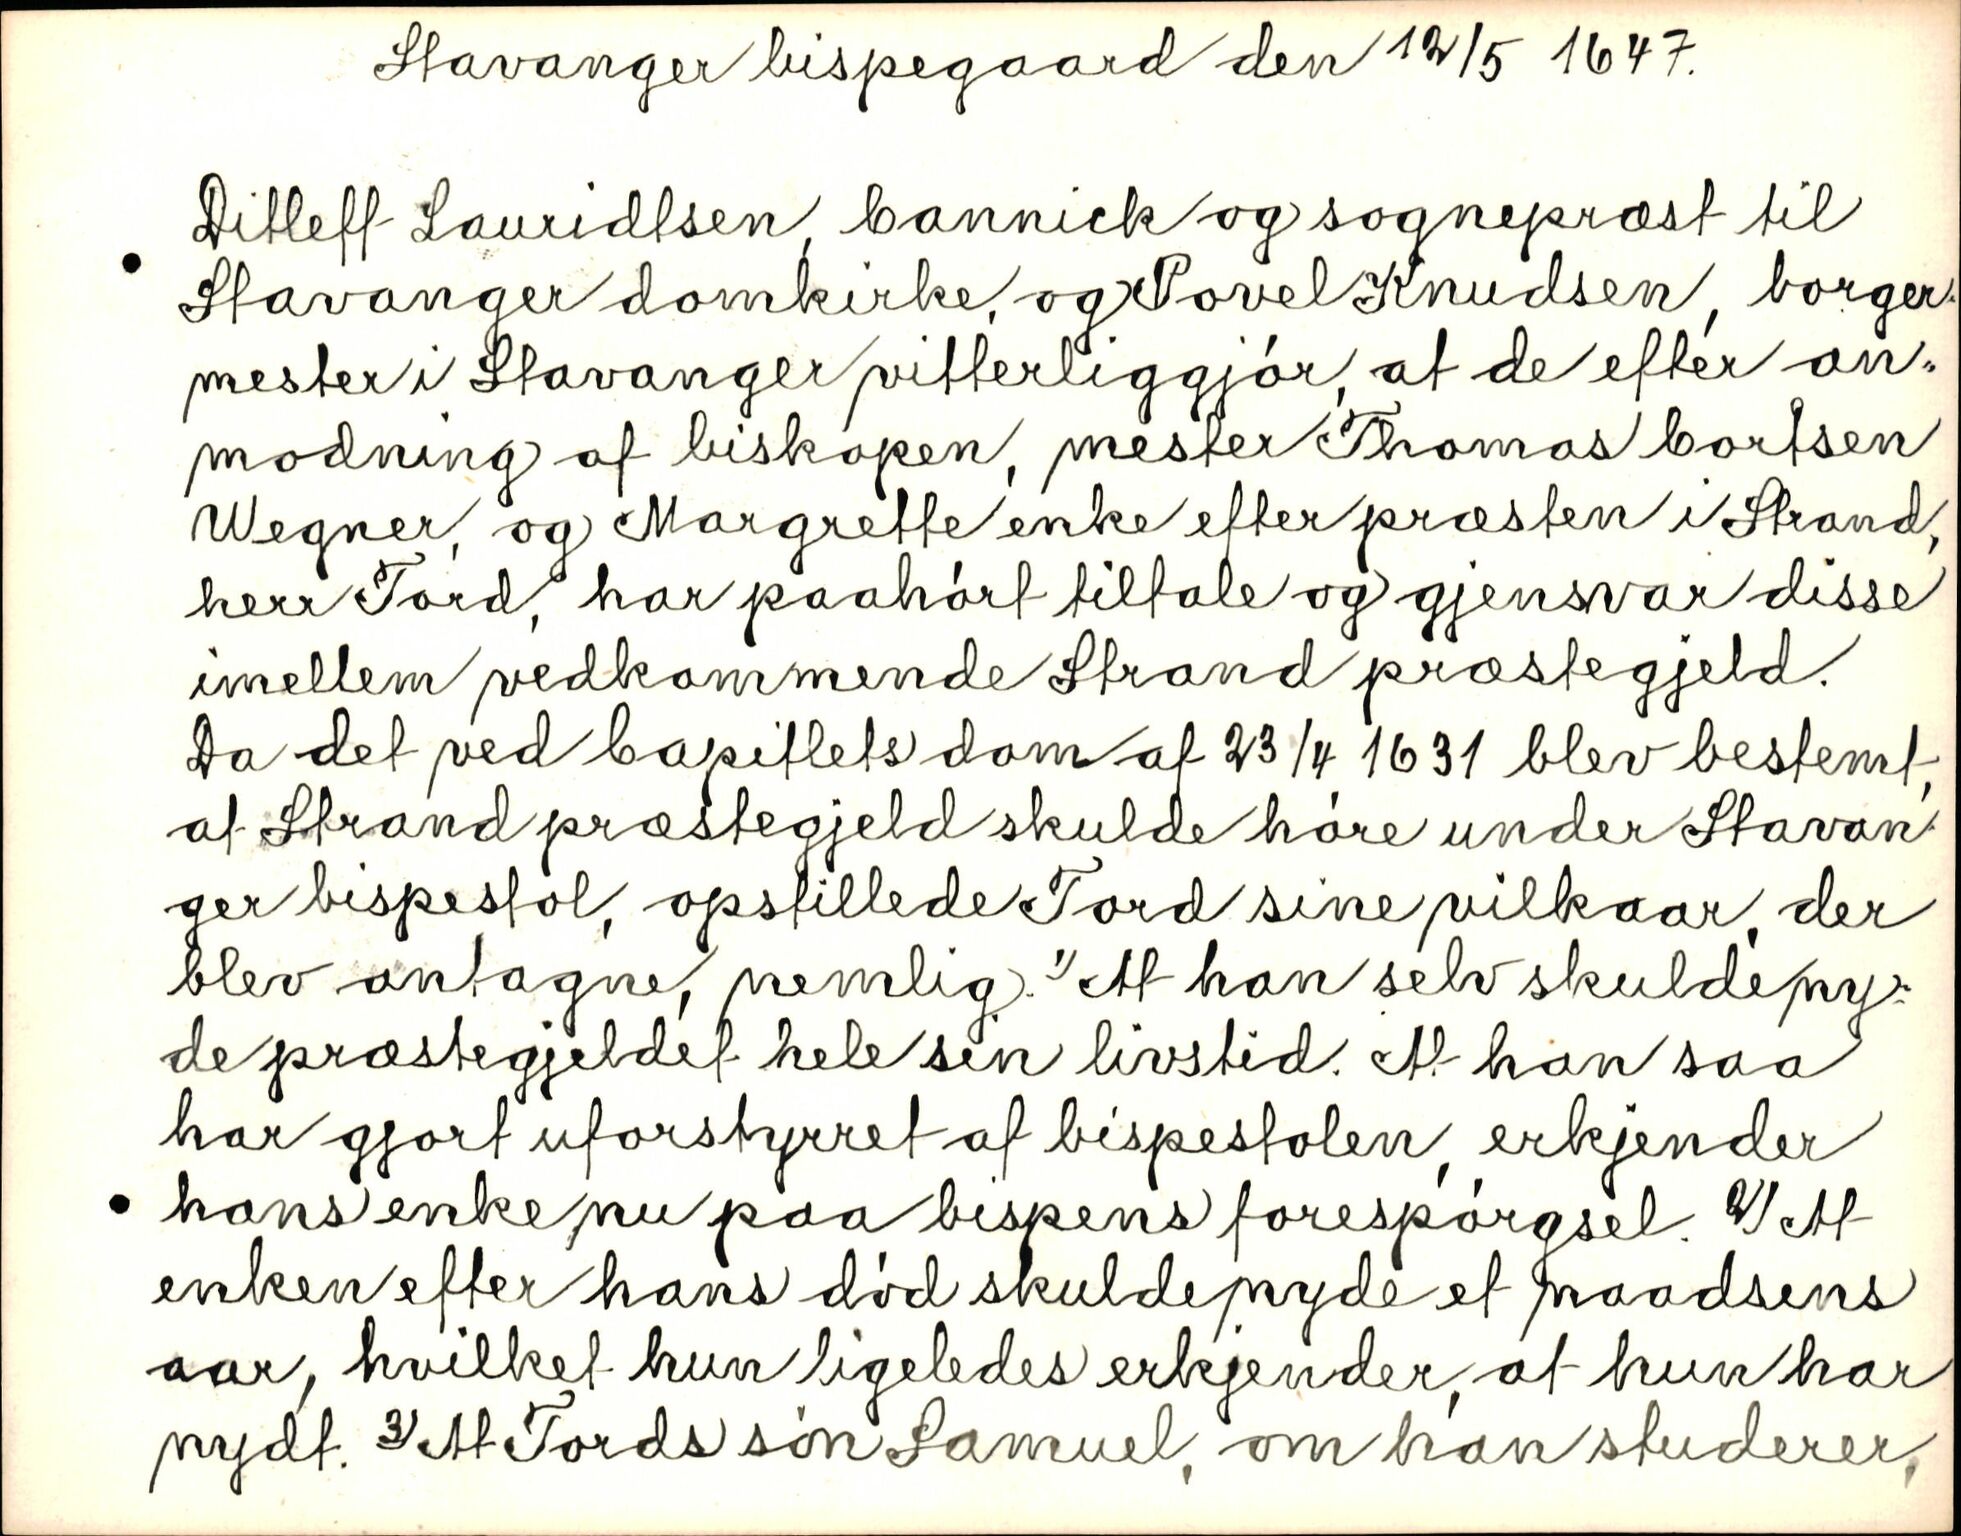 Stavanger bispegaard den 12/5 1647.
Ditleff Lauridtsen, Cannick og sognepræst til
Stavanger domkirke, og Povel Knudsen, borger-
mester i Stavanger vitterliggjór, at de efter an-
modning af biskopen, mester Thomas Cortsen
Wegner, og Margrette enke efter præsten i Strand,
herr Tord, har paahórt tiltale og gjensvar disse
imellem vedkommende Strand præstegjeld.
Da det ved Capitlets dom af 23/4 1631 blev bestemt,
at Strand præstegjeld skulde hóre under Stavan-
ger bispestol, opstillede Tord sine vilkaar, der
blev antagne, nemlig. 1) At han selv skulde ny-
de præstegjeldet hele sin livstid. At han saa
har gjort uforstyrret af bispestolen, erkjender
hans enke nu paa bispens forespórgsel. 2) At
enken efter hans dód skulde nyde et naadsens
aar, hvilket hun ligeledes erkjender, at hun har
nydt. 3) At Tords són Samuel, om han studerer,